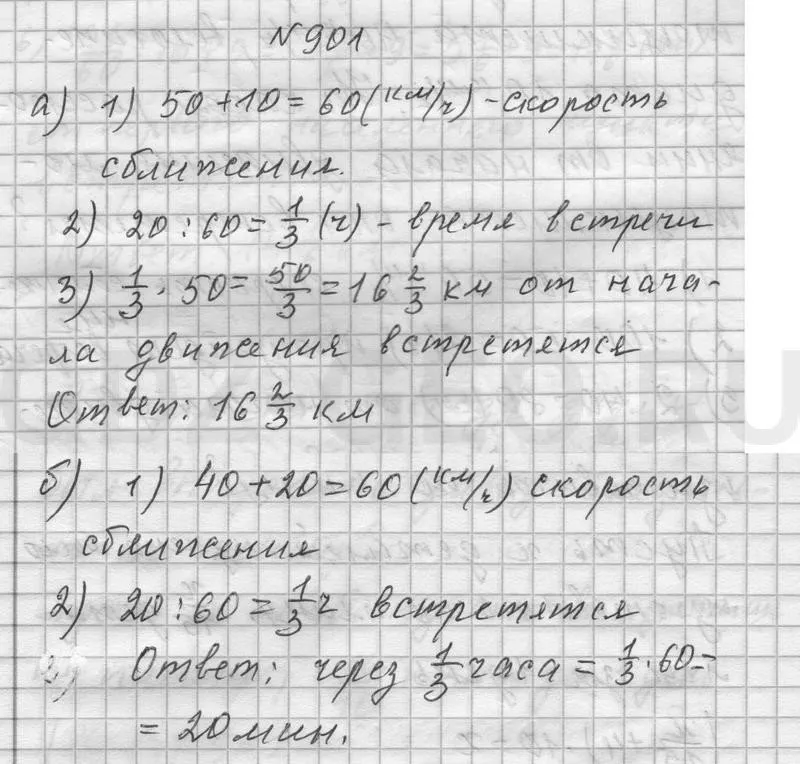 N 901
а) 1) 50 + 10 = 60 (км/ч) - скорость
сближения.
2) 20 : 60 = 1/3 (ч) - время встречи
3) 1/3 · 50 = 50/3 = 16 2/3 км от нача-
ла движения встретятся
Ответ: 16 2/3 км
б) 1) 40 + 20 = 60 (км/ч) скорость
сближения
2) 20 : 60 = 1/3 ч встретятся
Ответ: через 1/3 часа = 1/3 · 60 =
= 20 мин.